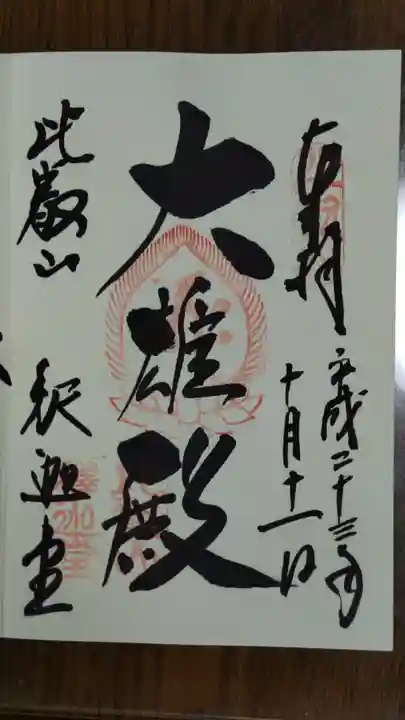 奉拝
平成二十三年
十月十一日
大雄殿
比叡山 釈迦堂